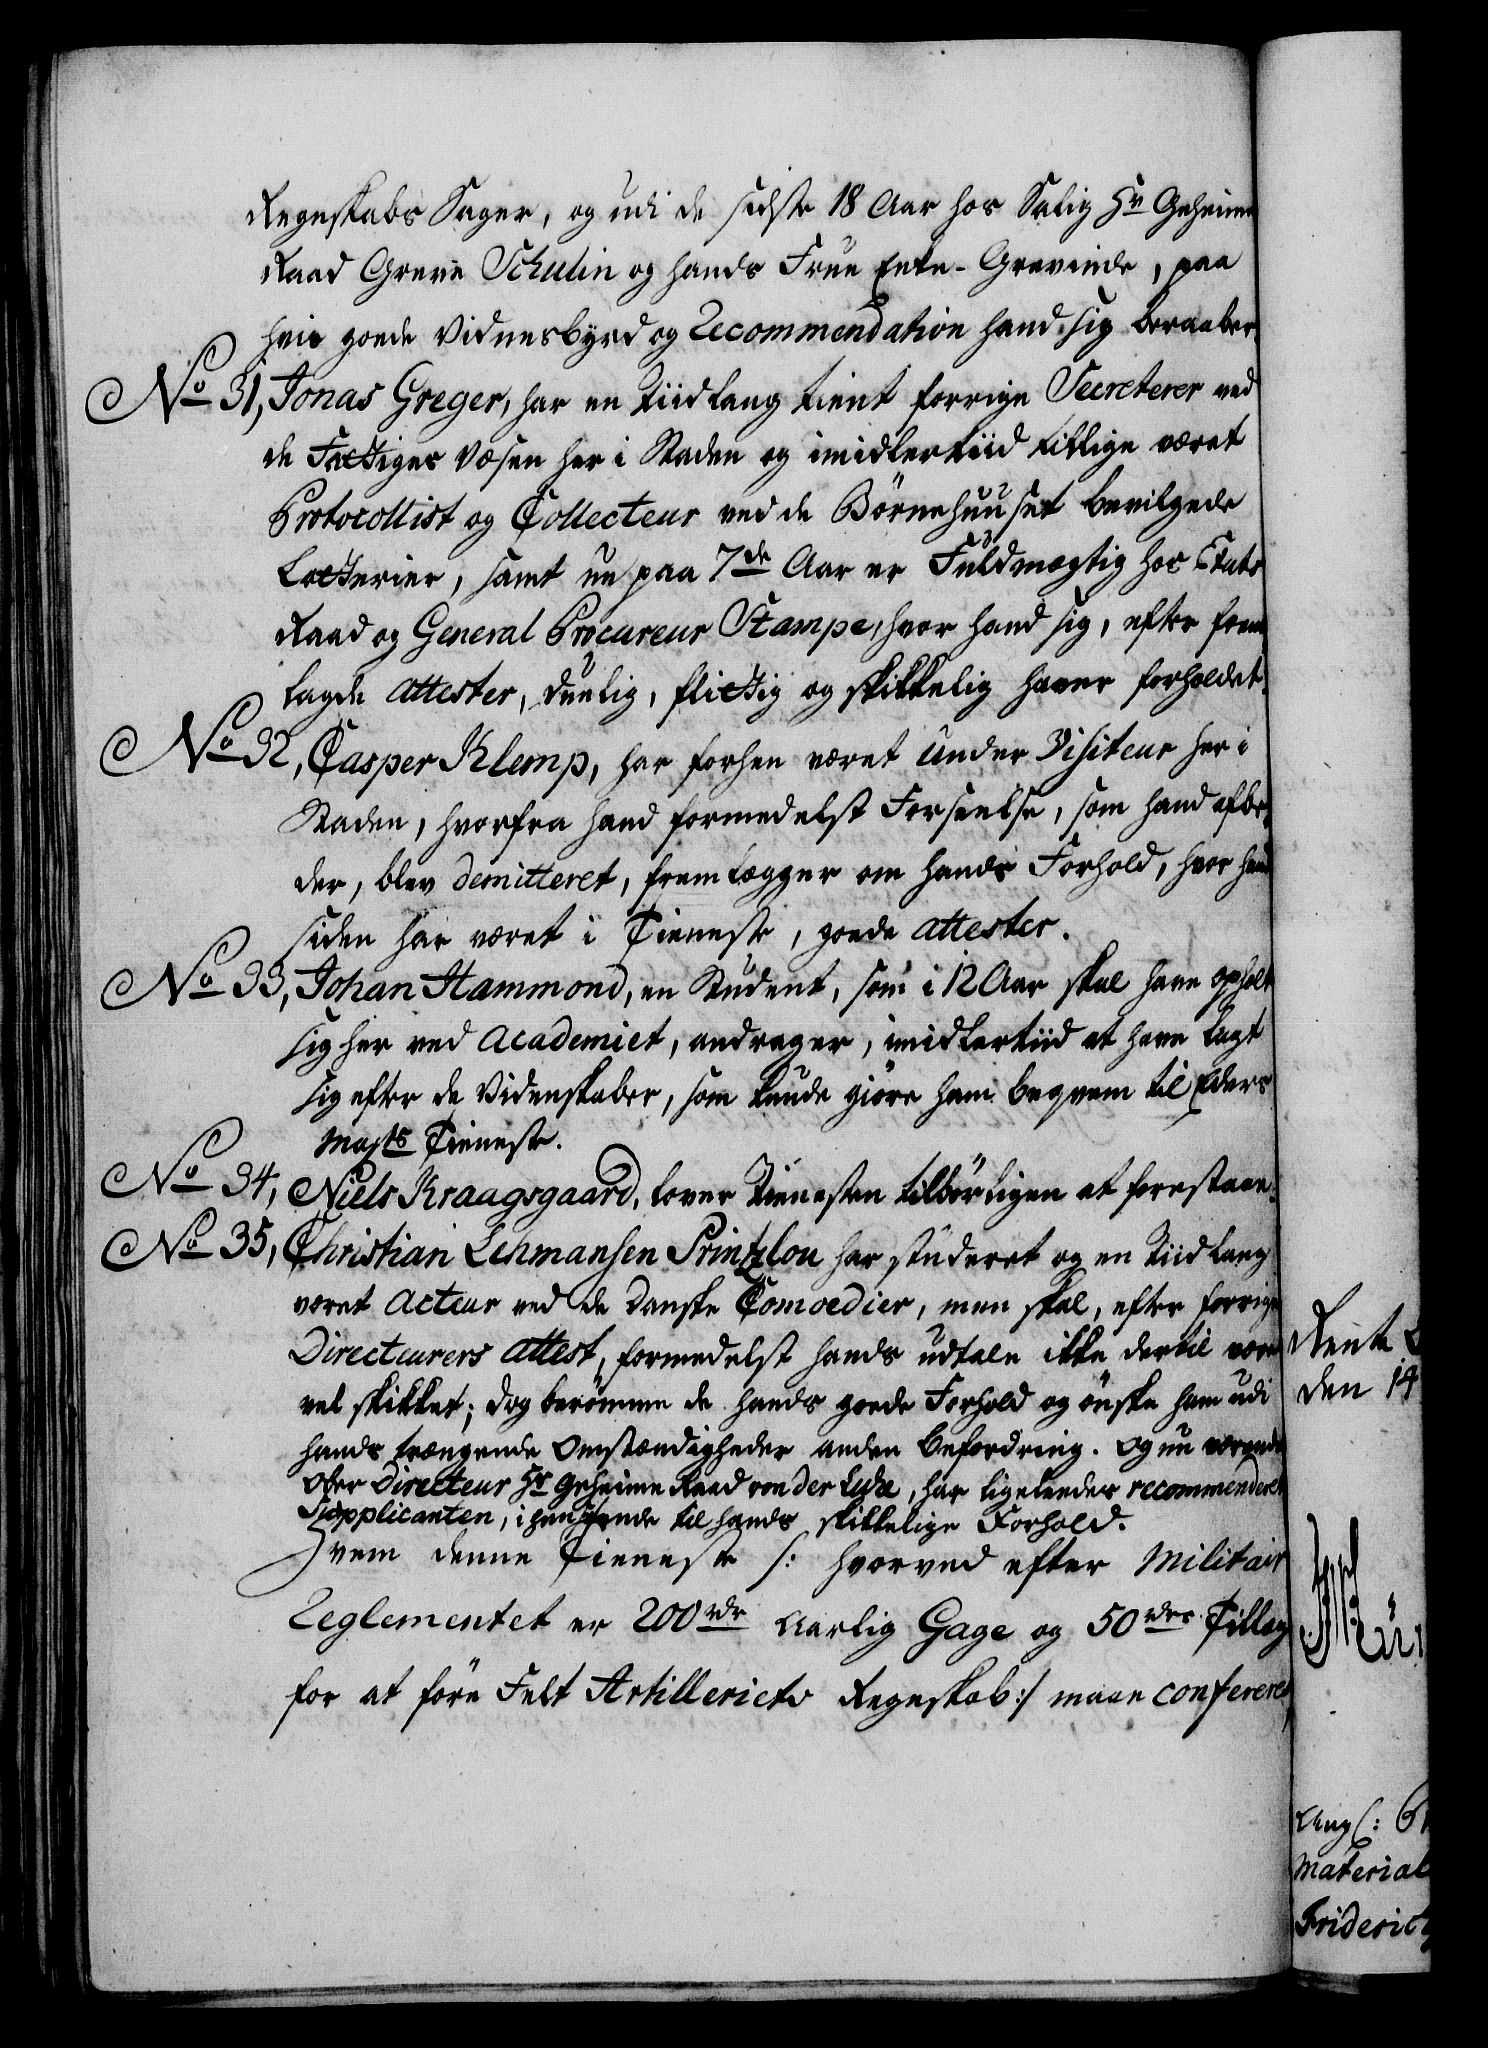 Regnskabs Sager, og udi de sidste 18 Aar hos Salig Hr Geheime
Raad Greve Schulin og hands Frue Enke-Grevinde, paa
hvis goede Vidnesbyrd og Recommendation hand sig beraaber.
No 31, Jonas Greger, har en Tiid lang tient forrige Secreterer ved
de Fattiges Væsen her i Staden og imidlertiid tillige været
Protocollist og Collecteur ved de Börnehuuset bevilgede
Lotterier, samt nu paa 7de Aar er Fuldmægtig hos Etats
Raad og General Procureur Stampe, hvor hand sig, efter frem
lagde attester, duelig, flittig og skikkelig haver forholdet.
No 32, Casper Klemp, har forhen været Under Visiteur her i
Staden, hvorfra hand formedelst Forseelse, som hand afbe
der, blev demitteret, fremlægger om hands Forhold, hvor hand
siden har været i Tieneste, goede attester.
No 33, Johan Hammond, en Student, som i 12 Aar skal have opholt
sig her ved Academiet, andrager, imidlertiid at have lagt
sig efter de Videnskaber, som kunde giöre ham beqvem til Eders
Mayts Tieneste.
No 34, Niels Kraagsgaard, lover Tienesten tilbörligen at forestaae.
No 35, Christian Lehmansen Printzlou har studeret og en Tiid lang
været Acteur ved de danske Comoedier, men skal, efter forrige
Directeurers attest, formedelst hands udtale ikke dertil være
vel skikket; dog berömme de hands goede Forhold og önske ham udi
hands trængende Omstændigheder anden Befordring. Og nu værende
Ober Directeur Hr Geheime Raad von der Lühe, har ligeledes recommenderet
Supplicanten, i henseende til hands skikkelige Forhold.
Hvem denne Tieneste /: hvorved efter Militair
Reglementet er 200 rdr Aarlig Gage og 50 rdrs Tillæg
for at före Felt Artilleriets Regnskab :/ maae confereres,
Rente
den 14
Material
Frideric